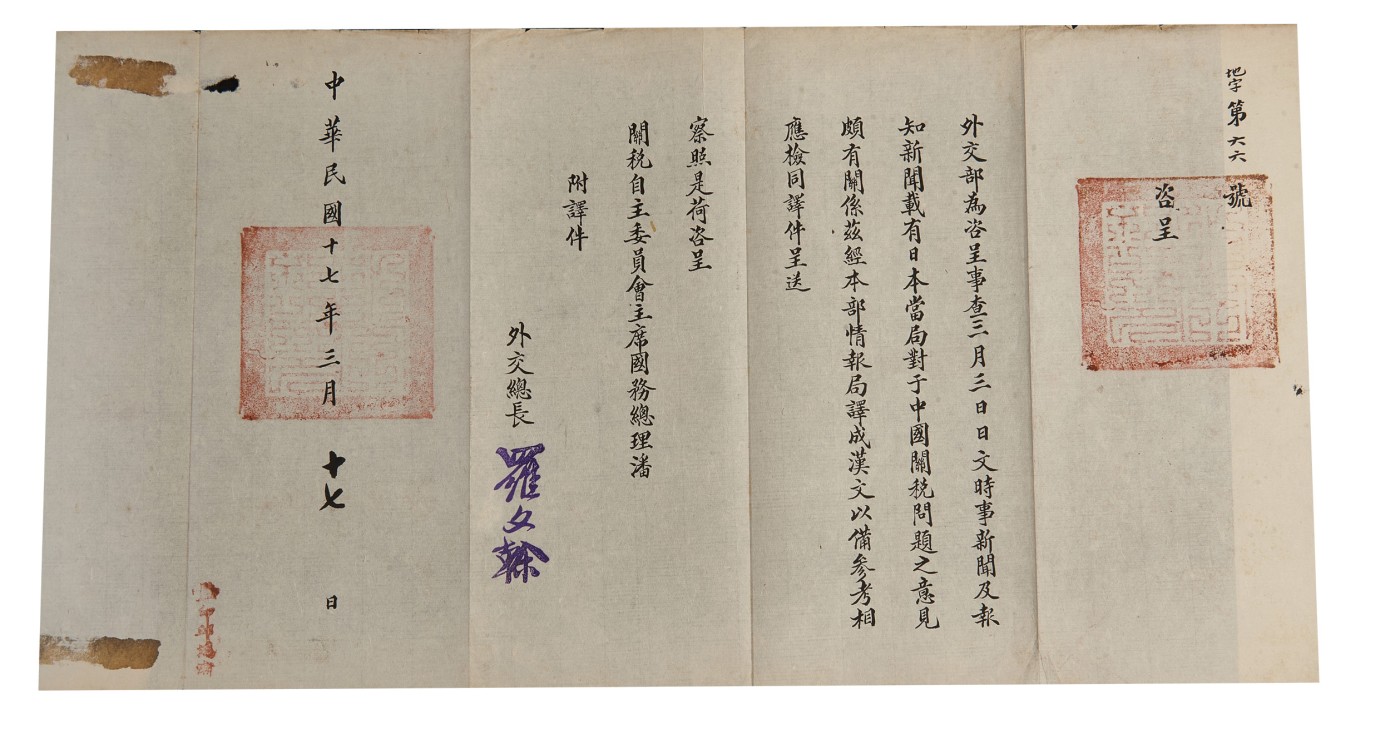 地字第六六號
咨呈
外交部為咨呈事查三月三日日文時事新聞及報
知新聞載有日本當局對于中國關稅問題之意見
頗有關係茲經本部情報局譯成漢文以備參考相
應檢同譯件呈送
察照是荷咨呈
關稅自主委員會主席國務總理潘
附譯件
外交總長羅文榦
中華民國十七年三月十七日